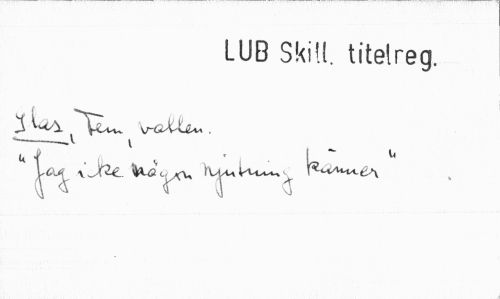 LUB Skill. titelreg.
Glas, Fem, vatten.
"Jag icke någon njutning känner"